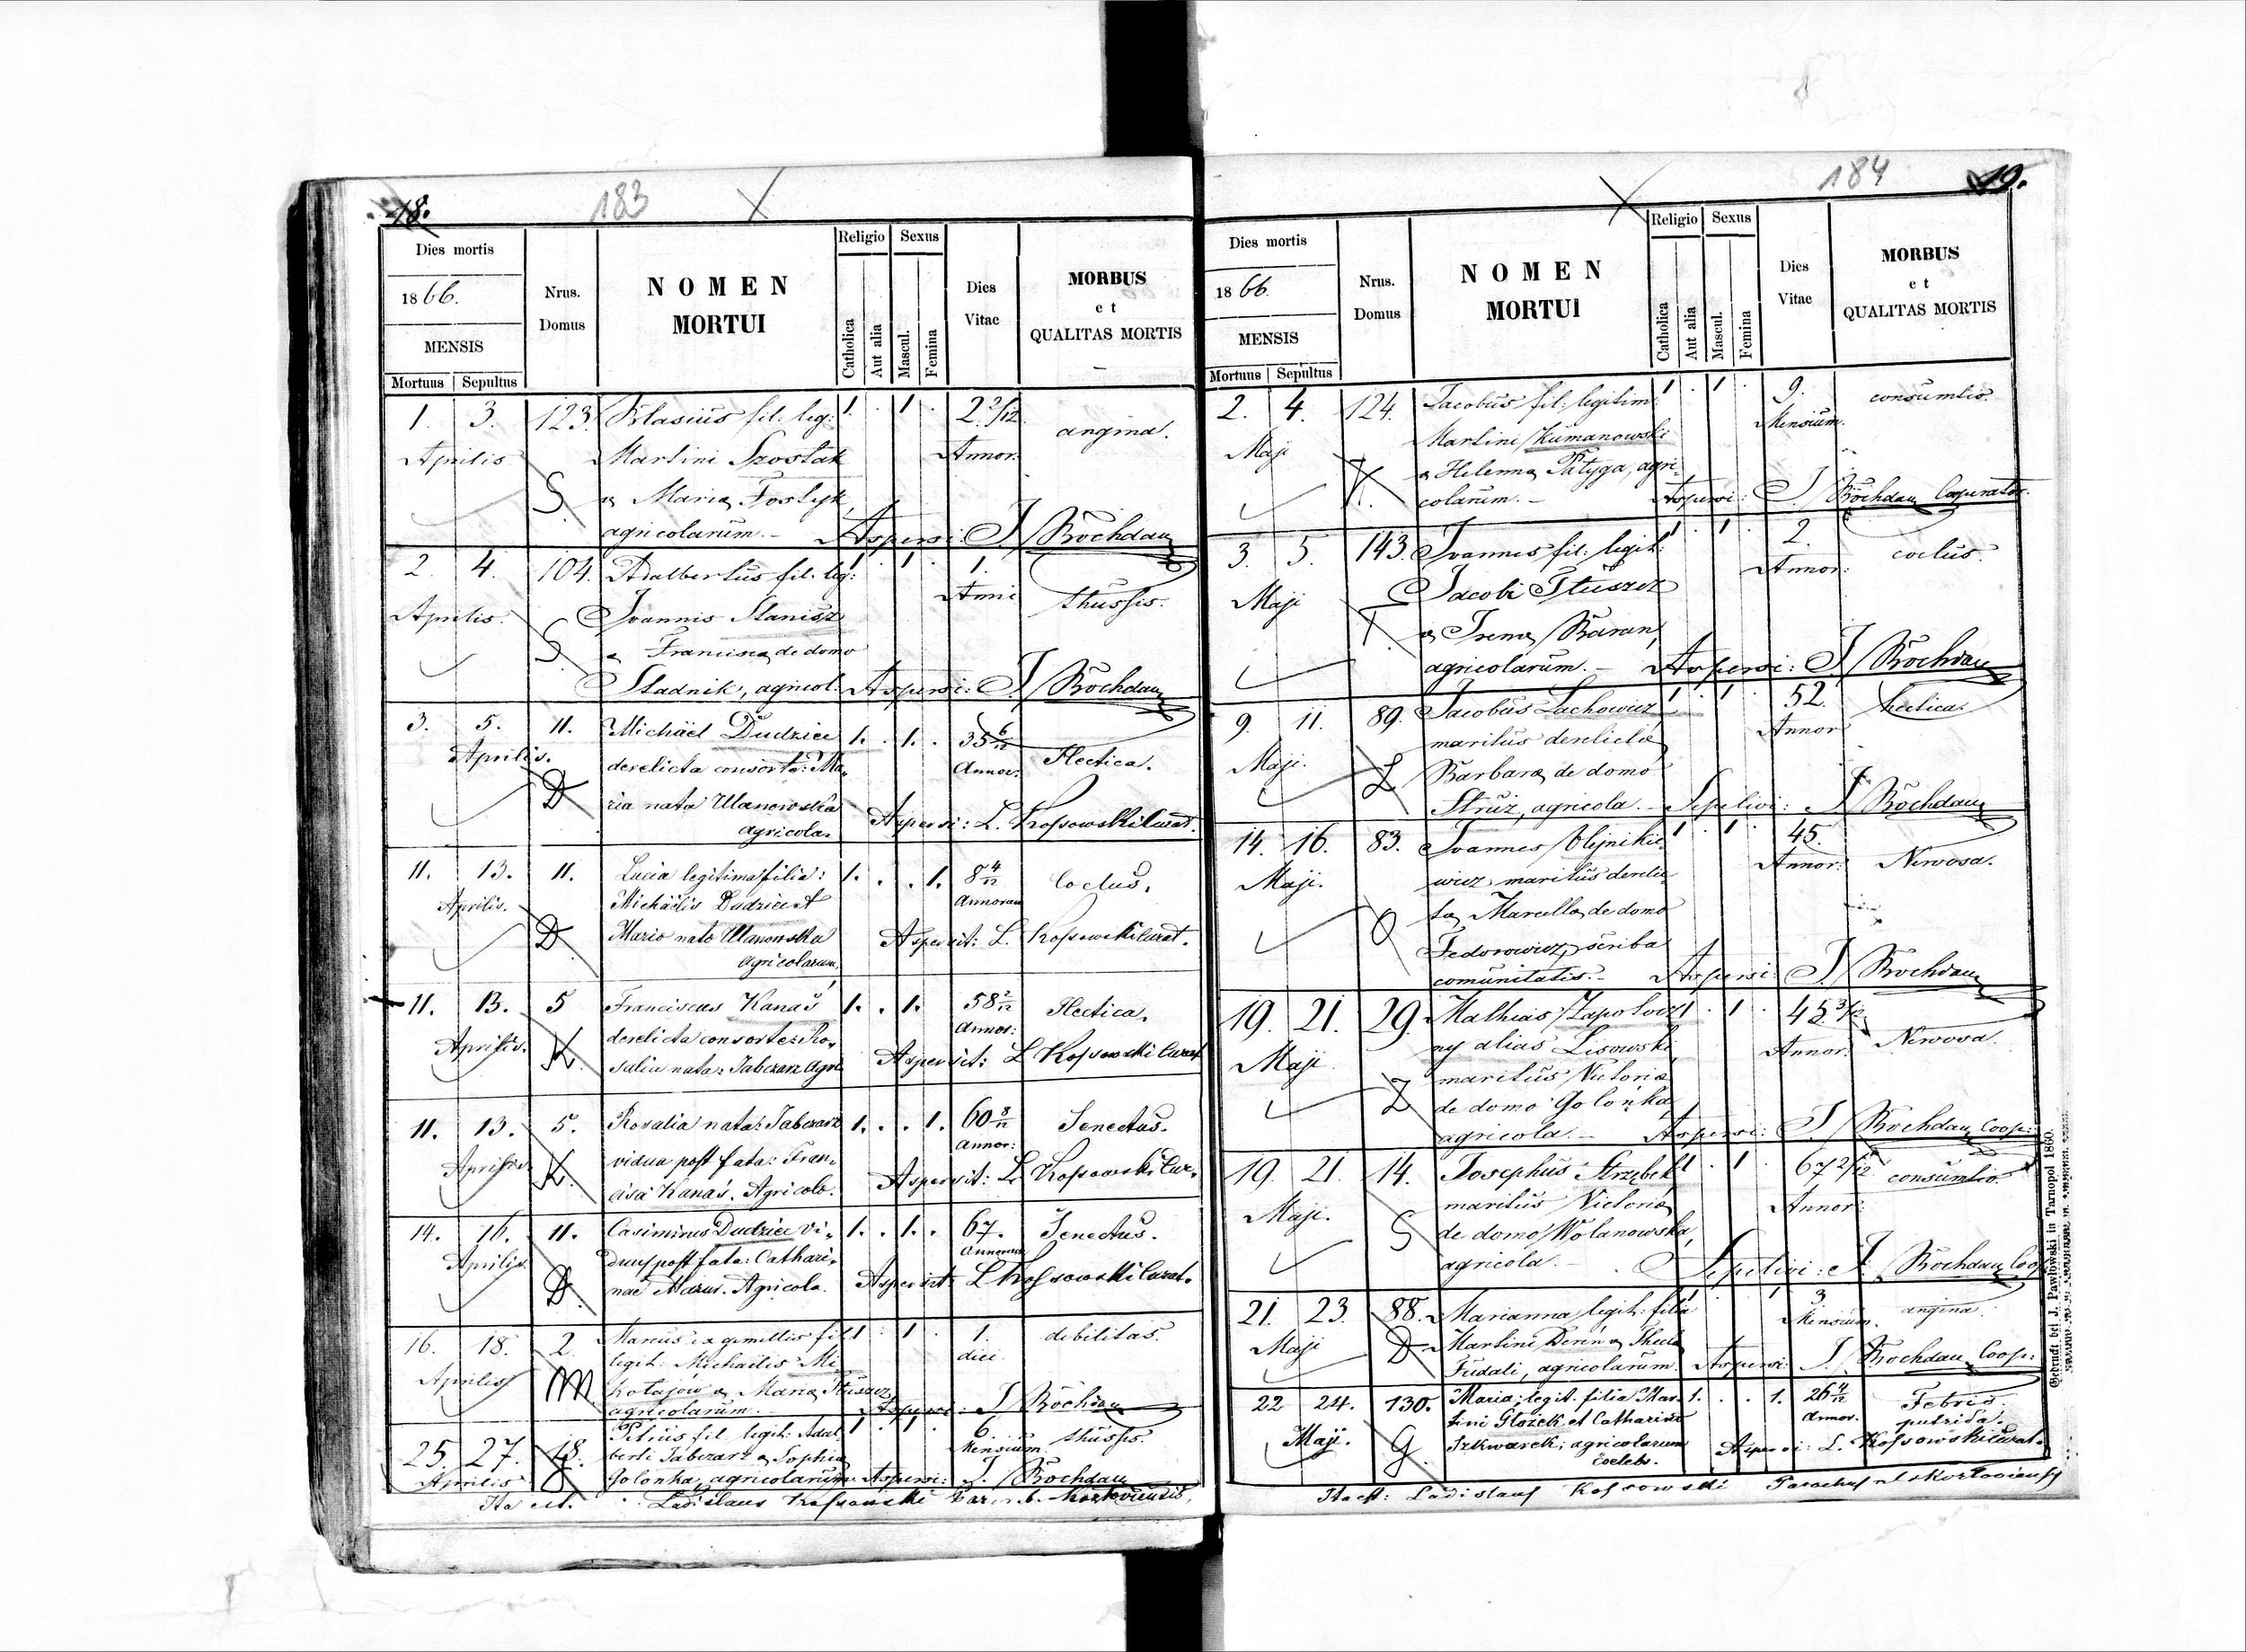 18.
183
Dies mortis
1866.
MENSIS
Mortuus Sepultus
Nrus. Domus
NOMEN
MORTUI
Religio
Catholica
Aut alia
Sexus
Mascul.
Femina
Dies
Vitae
MORBUS
et
QUALITAS MORTIS
1. 3. 123. Blasius fil: leg: 1. . 1 . 2 2/12 angina.
Aprilis Martini Szostak Annor.
S. & Maria
agricolarum. Aspersi: J Bochdan
2. 4. 104. Adalbertus fil. leg: 1 . 1 . 1. thussis.
Aprilis. Joannis Stanisz Anni
S & Francisca de domo
Stadnik, agricol. Aspersi: J Bochdan
3. 5. 11. Michäel Dudzicz 1. . 1. . 35 6/12 Hectica.
Aprilis. derelicta consorte: Ma- Annor:
D ria nata Ulanowska
agricola. Aspersi: L. Kossowski Curat.
11. 13. 11. Lucia legitima filia: 1. . . 1. 8 4/12 Coctus.
Aprilis. Michäelis Dudzic et Annorum
D Maria nata Ulanowska Aspersit: L. Kossowski Curat.
agricolarum,
11. 13. 5 Franciscus Kanaś 1. . 1. 58 2/12 Hectica.
Aprilis. derelicta consorte: Ro- Annor:
K. salia nata: Tabczarz agri Aspersit: L Kossowski Curat
11. 13. 5. Rosalia nata: Tabczarz 1. . . 1. 60 8/12 Senectus.
Aprilis. vidua post fata: Fran- Annor:
K. cisa Kanaś. Agricola. Aspersit: L. Kossowski Cur.
14. 16. 11. Casimirus Dudzicz vi- 1. . 1. . 67. Senectus.
Aprilis. duus post fata: Cathari- Annorum
D. nae Mazur. Agricola. Aspersit L Kossowski Curat.
16. 18. 2. ex gemellis fil 1 . 1 . 1. debilitas.
Aprilis legit: Michaelis Mi diei.
M kołajów & Maria Tłuszcz
agricolarum. Aspersi: J Bochdan
25. 27. 18. Petrus fil. legit: Adal 1 . 1 . 6. thussis.
Aprilis berti Tabczarz & Sophia Mensium.
Golonka, agricolarum Aspersi: J. Bochdan
Ita est. Ladislaus Kossowski
184
19.
Dies mortis
1866.
MENSIS
Mortuus Sepultus
Nrus.
Domus
NOMEN
MORTUI
Religio
Catholica
Aut alia
Sexus
Mascul.
Femina
Dies
Vitae
MORBUS
et
QUALITAS MORTIS
2. 4. 124. Jacobus fil: legitim: 1 . 1 . 9. consumtio.
Maji Martini Kumanowski Mensium.
K. & Helenna Patyga, agri-
colarum. Aspersi: J Bochdan Cooperator.
3. 5. 143. Joannes fil: legit: 1 . 1 . 2. coctus.
Maji Jacobi Tłuszcz Annor:
T & Irena Baran,
agricolarum. Aspersi: J Bochdan
9. 11. 89. Jacobus Lachowicz 1 . 1 . 52. hectica.
Maji. maritus derelicta Annor
L Barbara de domo
Struż, agricola. Sepelivi: J Bochdan
14. 16. 83. Joannes Olejnikie- 1 . 1 . 45. Nervosa.
Maji. wicz maritus derelic- Annor:
O ta Marcella de domo
Fedorowicz, scriba
comunitatis. Aspersi: J Bochdan
19. 21. 29. Mathias Zapotocz 1 . 1 . 45 3/12 Nervosa.
Maji ny alias Lisowski, Annor.
maritus Victoria
Z de domo Golonka,
agricola. Aspersi: J Bochdan Coop:
19. 21. 14. Josephus Strzębek 1 . 1 . 67 2/12 consumtio.
Maji. maritus Victoria Annor:
S de domo Wolanowska,
agricola. Sepelivi: J. Bochdan Coop
21. 23. 88. Marianna legit: filia 1 . . 1 3 angina.
Maji Martini Dereń & Thecla Mensium.
D Fudali, agricolarum. Aspersi: J. Bochdan Coop:
22 24. 130. Maria; legit. filia Mar- 1. . . 1. 26 4/12 Febris
Maji. tini Głozek et Catharina Annor. putrida.
G Szkwarek; agricolarum Aspersi: L. Kossowski Curat.
coelebs.
Ita est: Ladislaus Kossowski Parochus
Gedruckt bei J. Pawłowski in Tarnopol 1860.